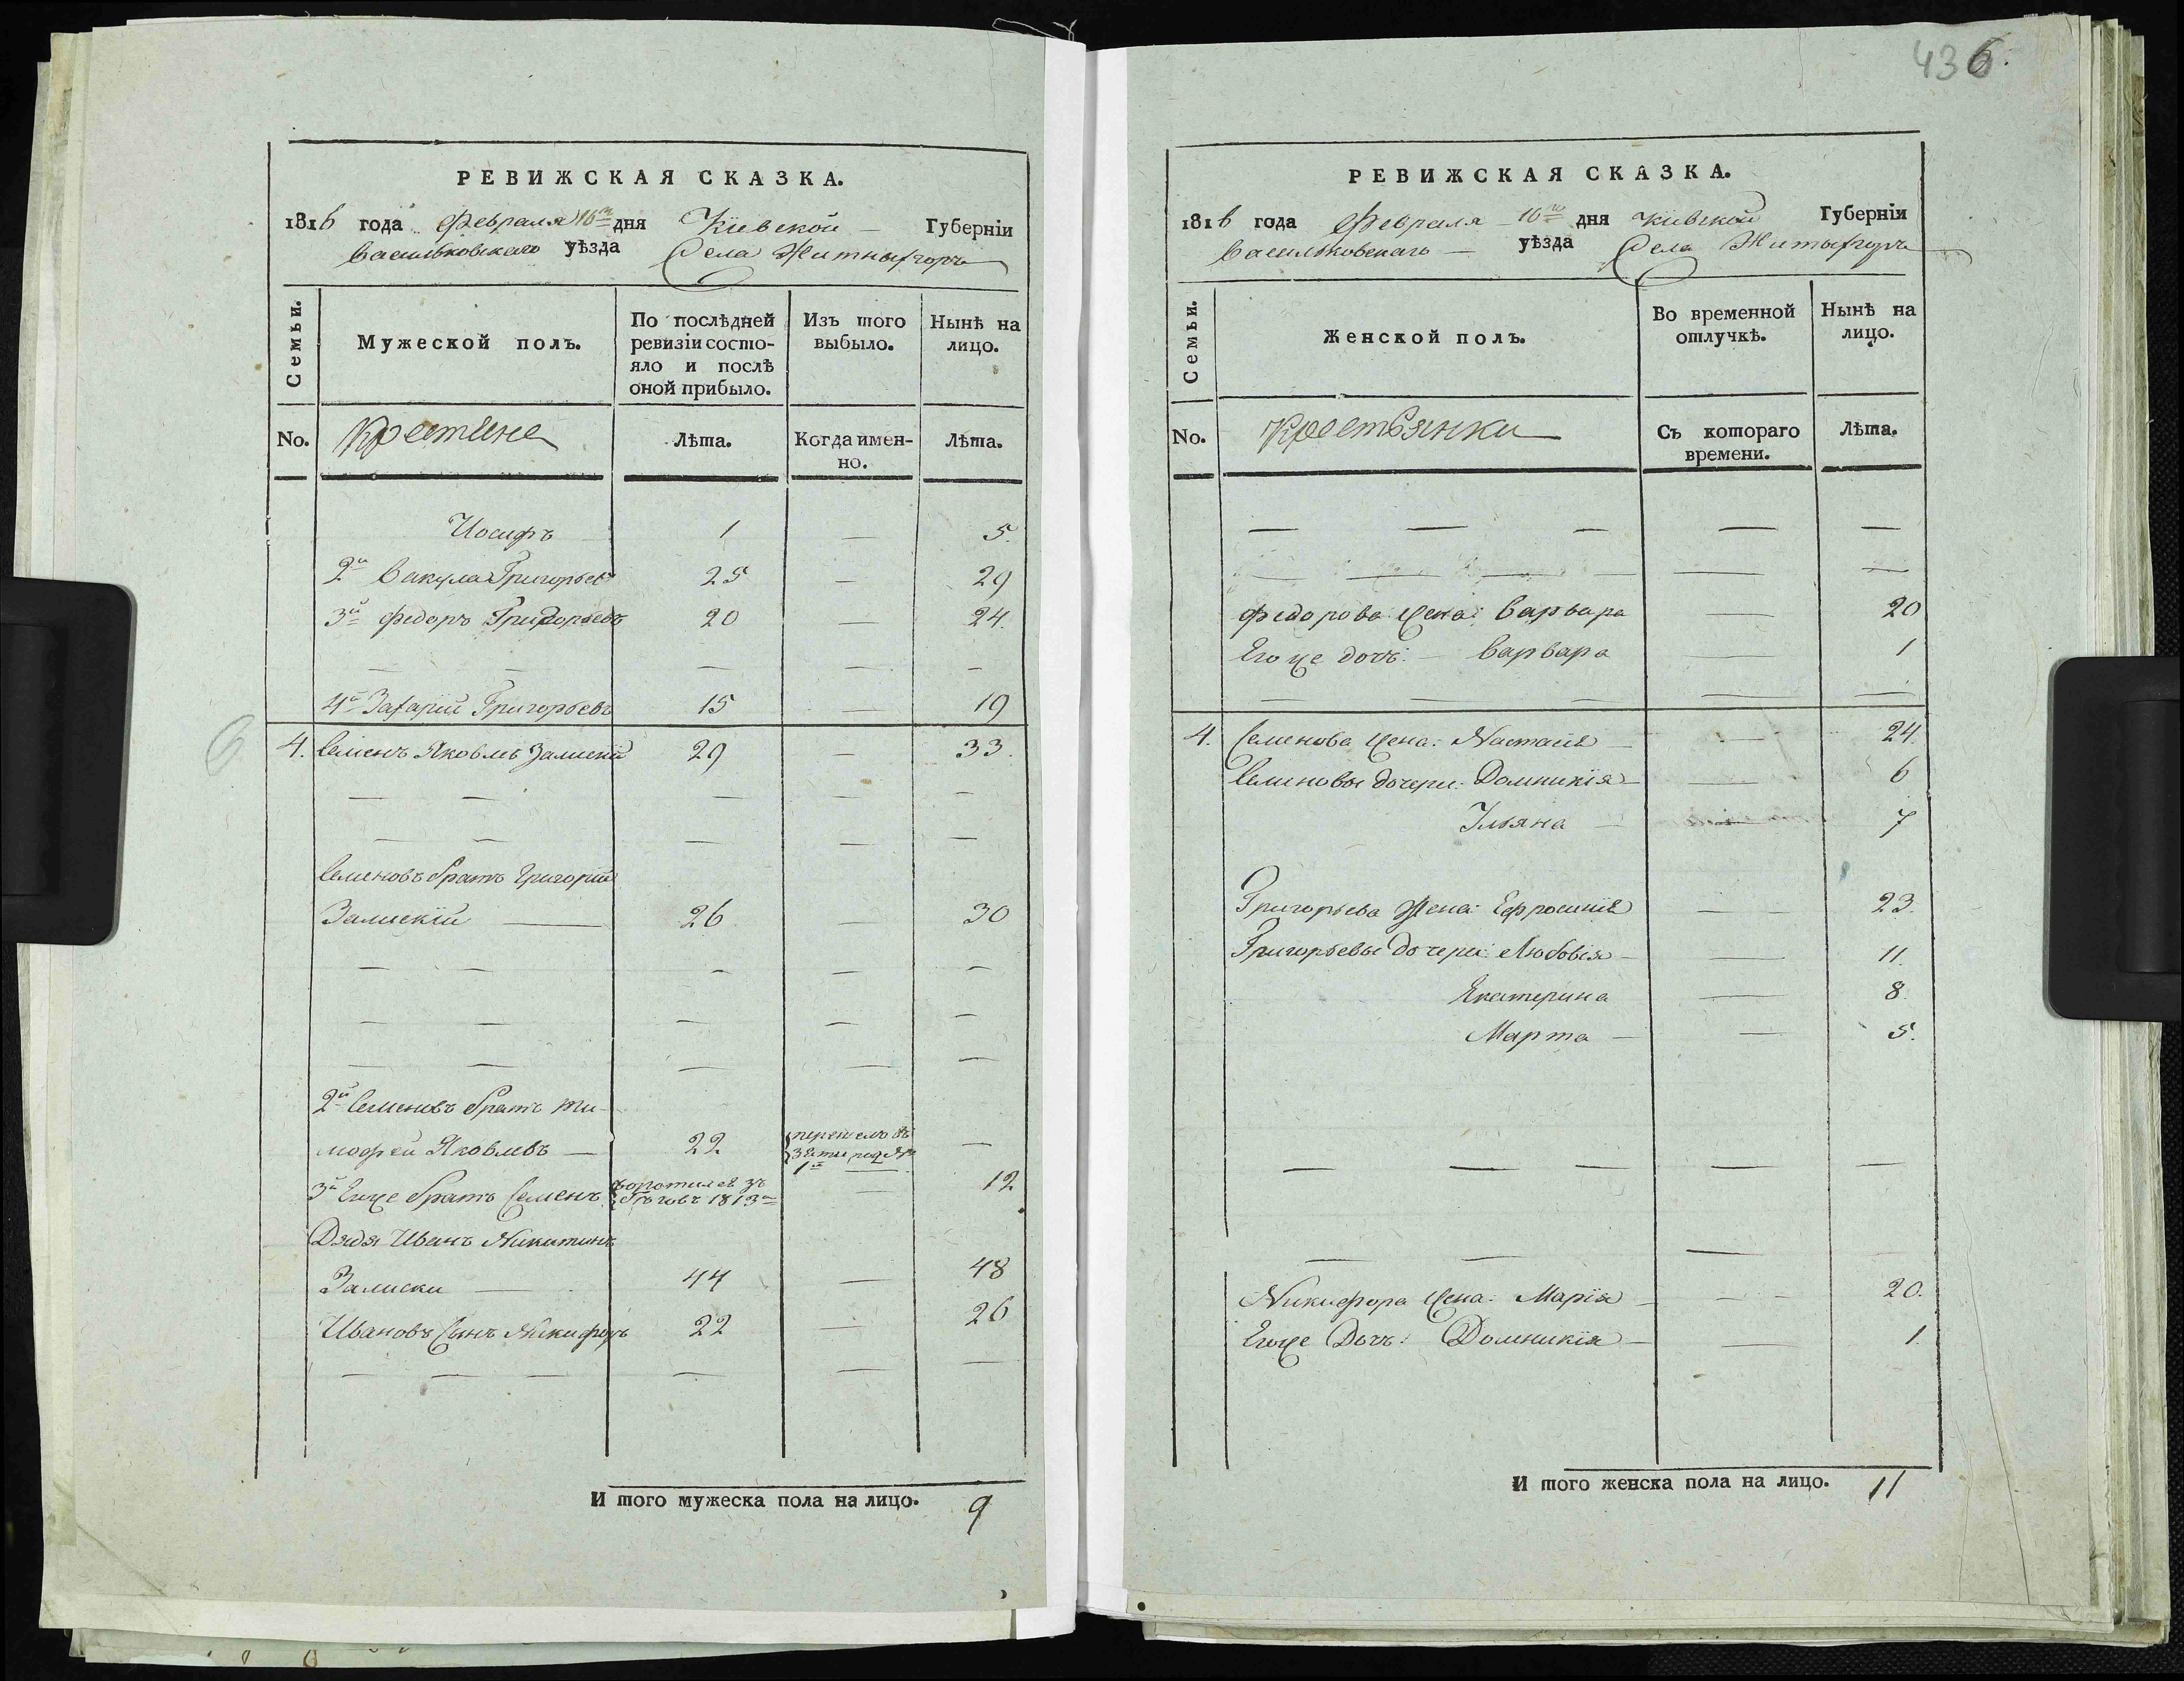 РЕВИЖСКАЯ СКАЗКА.
1816 года Февраля 16го дня Кіевской Губерніи
Васильковскаго уѣзда Села Житныхгоръ
Семьи.
Мужеской полъ.
По послѣдней ревизіи состо-
яло и послѣ
оной прибыло.
Изъ того
выбыло.
Нынѣ на
лицо.
No.
Лѣта.
Когда имен-
но.
Лѣта.
Иосифъ 1 — 5.
2й Вакула Григорьевъ 25 — 29
3й Федоръ Григорьевъ 20 — 24.
— — — — —
4й Захарій Григорьевъ 15 — 19
4. Семенъ Яковлевъ 29 — 33.
— — — — —
— — — — —
Семеновъ братъ Григорій
26 — 30
— — — — —
— — — — —
— — — — —
2й Семеновъ братъ Ти-
мофей Яковлевъ — 22 —
3й Егоже братъ Семенъ воротился зъ бѣговъ 1813го — 12
Дядя Иванъ Никитинъ
44 — 48
Ивановъ Сынъ Никифоръ 22 — 26
— — — — — —
И того мужеска пола на лицо. 9
436.
РЕВИЖСКАЯ СКАЗКА.
1816 года Февраля 16го дня Кіевской Губерніи
Васильковскаго — уѣзда Села
Семьи.
Женской полъ.
Во временной
отлучкѣ.
Нынѣ на
лицо.
No.
Крестьянки
Съ котораго
времени.
Лѣта.
— — — — —
— — — — — —
Федорова жена: Варвара — 20
Егоже дочь: — Варвара — 1
— — — — —
4. Семенова жена: Настасія — 24.
Семеновы дочери: Домникія — 6
Ульяна — — 7
Григорьева жена: Ефросинія — 23.
Григорьевы дочери: Любовія — 11.
Екатерина — 8.
Марта — — 5.
— — — — —
— — — —
Никифора жена: Марія — 20.
Егоже Дочь: Домникія — 1.
И того женска пола на лицо. 11